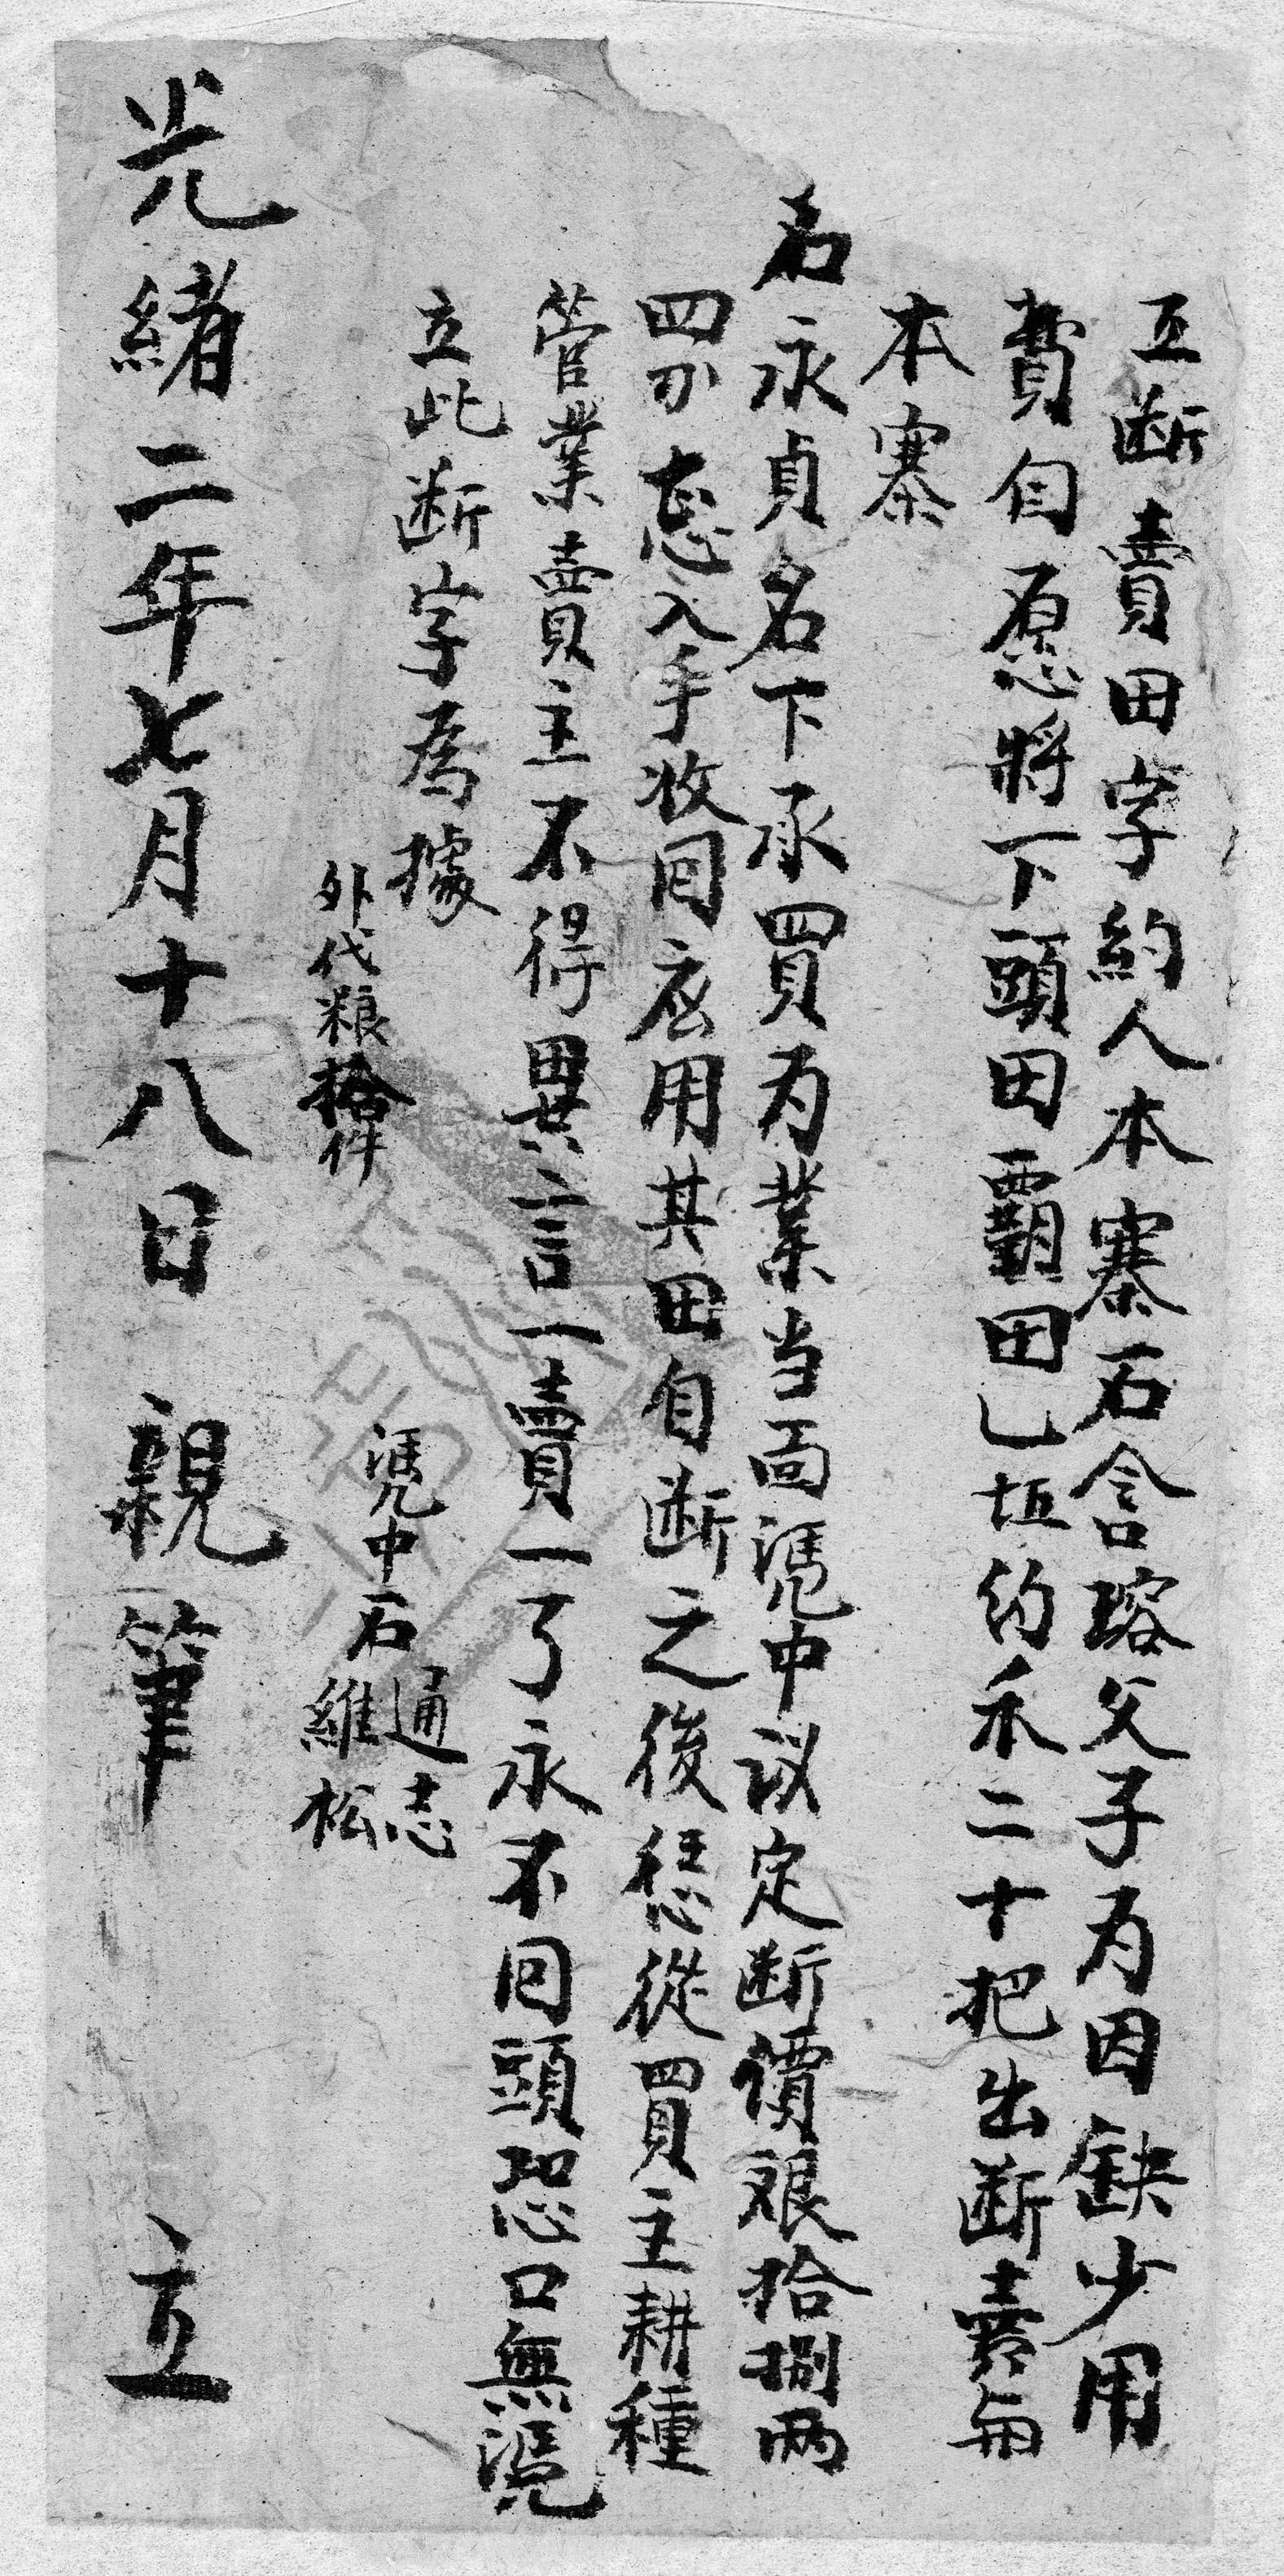 立断賣田字約人本寨石含瑢父子为因缺少用
費自愿將下頭田覇田乚坵約禾二十把出断賣與
本寨
石永貞名下承買为業当面凴中议定断價艮拾捌两
四分恴入手收回应用其田自断之後恁從買主耕種
管業賣主不得異言一賣一了永不回頭恐口無凴
立此断字為據
外代粮拾件
凴中石通志
維松
光緒二年七月十八日親筆立